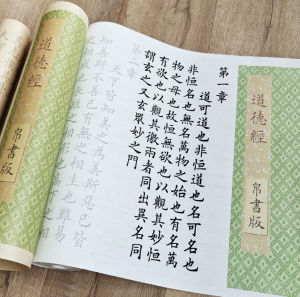 道德經
帛書版
第一章
道可道也非恒道也名可名也
非恒名也無名萬物之始也有名萬
物之母也故恒無欲也以觀其妙恒
有欲也以觀其徼兩者同出異名同
謂玄之又玄眾妙之門
第二章
天下皆知美為美斯惡已皆
知善斯不善已有無之相生也難易
道德經
帛書版